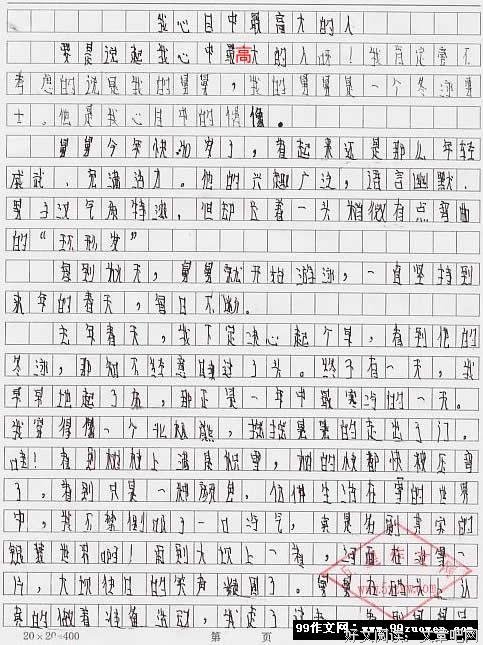 我心目中最高大的人
要是说起我心中最高大的人呀！我肯定会不
考虑的说是我的舅舅，我的舅舅是一个冬泳勇
士。他是我心目中的偶像。
舅舅今年快50岁了，看起来还是那么年轻
威武、充满活力。他的兴趣广泛，语言幽默，
男子汉气质特浓，但却长着一头稍微有点弯曲
的“环形发”
每到秋天，舅舅就开始游泳，一直坚持到
来年的春天，每日不
去年春天，我下定决心起个早，看到他的
冬泳，那知不经意睡过了头。终于有一天，我
早早地起了床，那正是一年中最寒冷的一天。
我穿得像一个北极熊，摇摇晃晃的走出了门。
哇！看到树枝上满是积雪，树的枝都快被压弯
了。看到只是一种颜色。仿佛生活在雪的世界
中，我不禁倒吸了一口冷气，真是名副其实的
银装世界啊！来到大坝上一看，河面
片，大坝
真的做着准备
20×20=400
第 页
99作文网：www.99zuowen.com
好文阅读：文章吧网